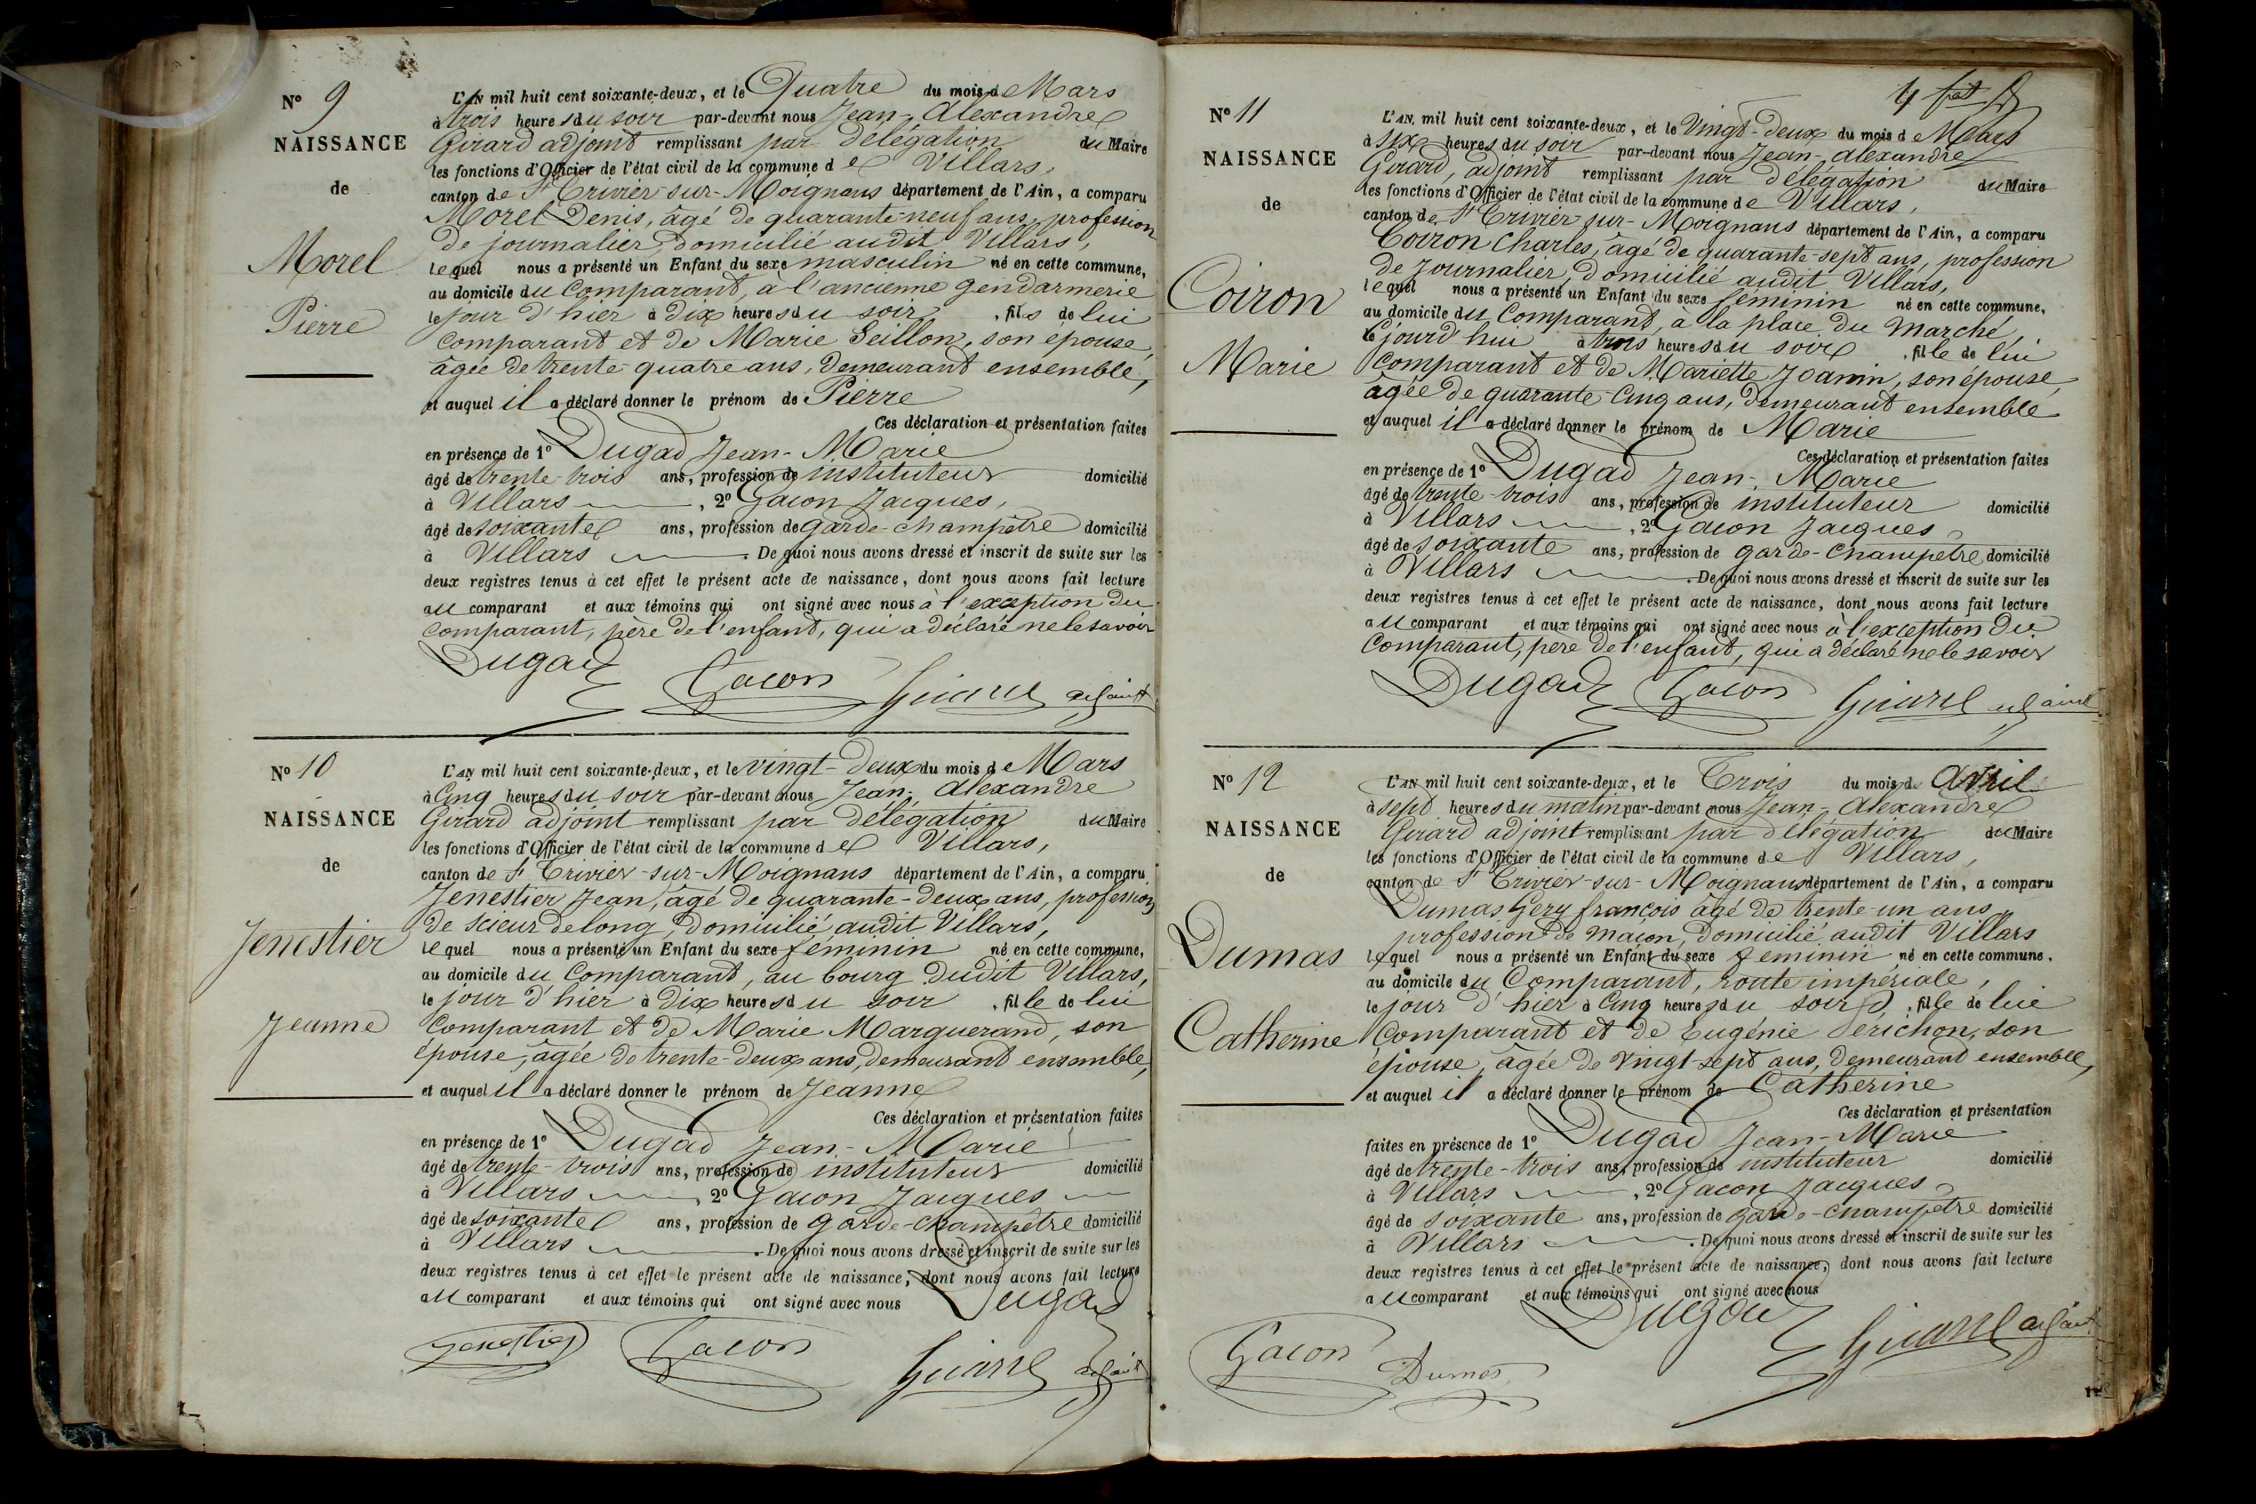 Nº 9
NAISSANCE
de
Morel
Pierre
L'AN mil huit cent soixante-deux, et le Quatre du mois de Mars
à trois heures du soir par-devant nous Jean-Alexandre
Girard adjoint remplissant par délégation du Maire
les fonctions d'Officier de l'état civil de la commune de Villars,
canton de St Trivier-sur-Moignans département de l'Ain, a comparu
Morel Denis, âgé de quarante-neuf ans, profession
de journalier, domicilié audit Villars,
lequel nous a présenté un Enfant du sexe masculin né en cette commune,
au domicile du Comparant, à l'ancienne gendarmerie
le jour d'hier à dix heures du soir, fils de lui
Comparant et de Marie Seillon, son épouse,
âgée de trente-quatre ans, demeurant ensemble,
et auquel il a déclaré donner le prénom de Pierre
Ces déclaration et présentation faites
en présence de 1º Dugad Jean-Marie
âgé de trente-trois ans, profession de instituteur domicilié
à Villars, 2º Gacon Jacques,
âgé de soixante ans, profession de garde-champêtre domicilié
à Villars. De quoi nous avons dressé et inscrit de suite sur les
deux registres tenus à cet effet le présent acte de naissance, dont nous avons fait lecture
au comparant et aux témoins qui ont signé avec nous à l'exception du
comparant, père de l'enfant, qui a déclaré ne le savoir
Dugad Gacon Girard adjoint
Nº 10
NAISSANCE
de
Jenestier
Jeanne
L'AN mil huit cent soixante-deux, et le vingt-deux du mois de Mars
à Cinq heures du soir par-devant nous Jean-Alexandre
Girard adjoint remplissant par délégation du Maire
les fonctions d'Officier de l'état civil de la commune de Villars,
canton de St Trivier-sur-Moignans département de l'Ain, a comparu
Jenestier Jean, âgé de quarante-deux ans, profession
de scieur de long, domicilié audit Villars,
lequel nous a présenté un Enfant du sexe féminin né en cette commune,
au domicile du Comparant, au bourg dudit Villars,
le jour d'hier à Dix heures du soir, fille de lui
Comparant et de Marie Marguerand, son
épouse, âgée de trente-deux ans, demeurant ensemble,
et auquel il a déclaré donner le prénom de Jeanne
Ces déclaration et présentation faites
en présence de 1º Dugad Jean-Marie
âgé de trente-trois ans, profession de instituteur domicilié
à Villars, 2º Gacon Jacques
âgé de soixante ans, profession de garde-champêtre domicilié
à Villars. De quoi nous avons dressé et inscrit de suite sur les
deux registres tenus à cet effet le présent acte de naissance, dont nous avons fait lecture
au comparant et aux témoins qui ont signé avec nous Dugad
Jenestier Gacon Girard adjoint
Nº 11
NAISSANCE
de
Coiron
Marie
L'AN mil huit cent soixante-deux, et le Vingt-deux du mois de Mars
à six heures du soir par-devant nous Jean-Alexandre
Girard, adjoint remplissant par délégation du Maire
les fonctions d'Officier de l'état civil de la commune de Villars,
canton de St Trivier sur-Moignans département de l'Ain, a comparu
Coiron Charles, âgé de quarante-sept ans, profession
de Journalier, domicilié audit Villars,
lequel nous a présenté un Enfant du sexe féminin né en cette commune,
au domicile du Comparant, à la place du Marché,
cejourd'hui à trois heures du soir, fille de lui
Comparant et de Mariette Joanin, son épouse,
âgée de quarante-cinq ans, demeurant ensemble
et auquel il a déclaré donner le prénom de Marie
Ces déclaration et présentation faites
en présence de 1º Dugad Jean-Marie
âgé de trente-trois ans, profession de instituteur domicilié
à Villars, 2º Gacon Jacques
âgé de soixante ans, profession de garde-champêtre domicilié
à Villars. De quoi nous avons dressé et inscrit de suite sur les
deux registres tenus à cet effet le présent acte de naissance, dont nous avons fait lecture
au comparant et aux témoins qui ont signé avec nous à l'exception du
Comparant, père de l'enfant, qui a déclaré ne le savoir
Dugad Gacon Girard adjoint
Nº 12
NAISSANCE
de
Dumas
Catherine
L'AN mil huit cent soixante-deux, et le Trois du mois d Avril
à sept heures du matin par-devant nous Jean-Alexandre
Girard adjoint remplissant par délégation du Maire
les fonctions d'Officier de l'état civil de la commune de Villars,
canton de St Trivier-sur-Moignans département de l'Ain, a comparu
Dumas Gery françois âgé de trente-un ans,
profession de maçon, domicilié audit Villars
lequel nous a présenté un Enfant du sexe féminin né en cette commune,
au domicile du Comparant, route impériale,
le jour d'hier à Cinq heures du soir, fille de lui
Comparant et de Eugénie Derichon, son
épouse, âgée de vingt-sept ans, demeurant ensemble,
et auquel il a déclaré donner le prénom de Catherine
Ces déclaration et présentation
faites en présence de 1º Dugad Jean-Marie
âgé de trente-trois ans, profession de instituteur domicilié
à Villars, 2º Gacon Jacques
âgé de soixante ans, profession de garde-champêtre domicilié
à Villars. De quoi nous avons dressé et inscrit de suite sur les
deux registres tenus à cet effet le présent acte de naissance, dont nous avons fait lecture
au comparant et aux témoins qui ont signé avec nous
Dugad Girard adjoint
Gacon Dumas